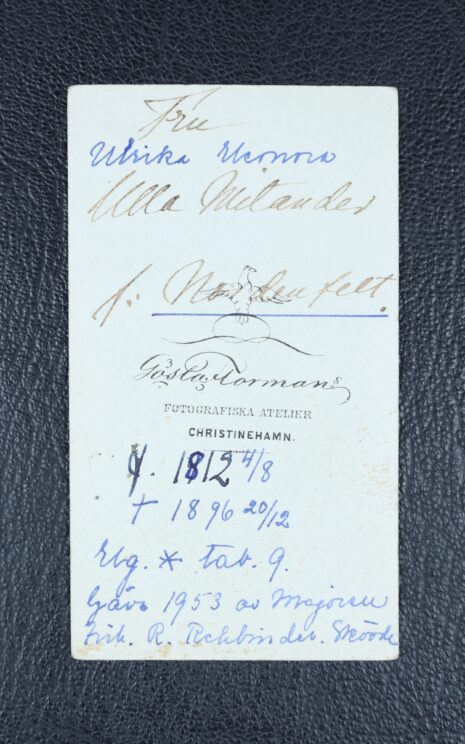 Fru
Ulrika Eleonora
Ulla Mitander
f: Nordenfelt.
Gösta Flormans
FOTOGRAFISKA ATELIER
CHRISTINEHAMN.
f. 1812 4/8
† 1896 20/12
Elg. * tab. 9.
Gåva 1953 av Majoren
Frih. R. Rehbinder. Skövde